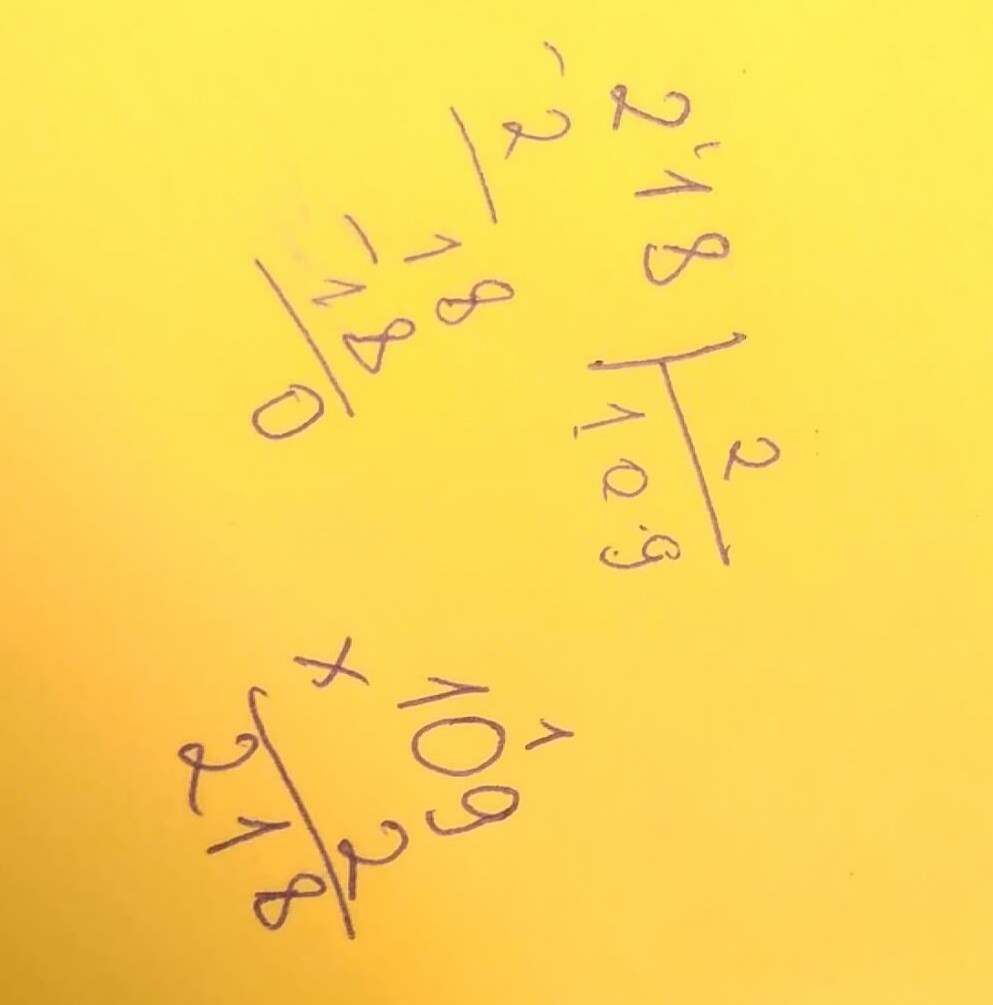 2'18 | 2
- 2 | 109
18
- 18
0
1
109
x 2
218